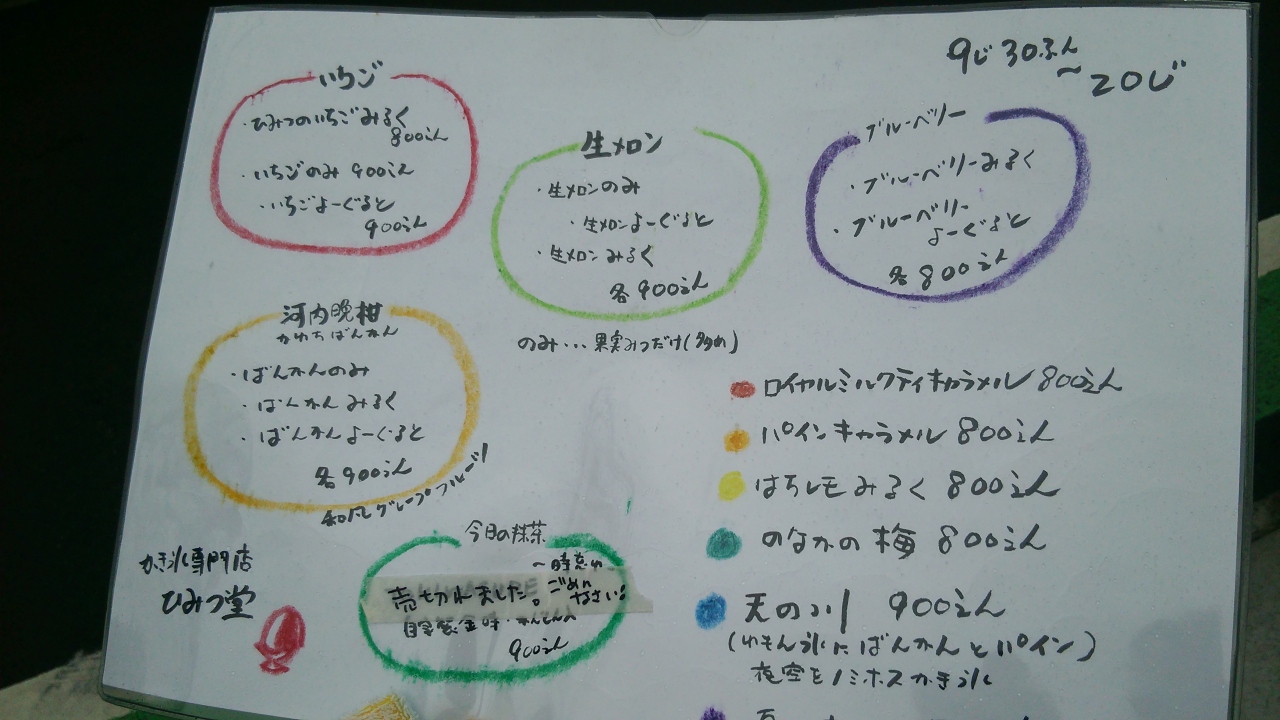 9じ30ふん
~20じ
いちご
・ひみつのいちごみるく
800えん
・いちごのみ 900えん
・いちごよーぐると
900えん
生メロン
・生メロンのみ
・生メロンよーぐると
・生メロンみるく
各900えん
ブルーベリー
・ブルーベリーみるく
・ブルーベリー
よーぐると
各800えん
のみ・・・果実みつだけ(多め)
河内晩柑
かわちばんかん
・ばんかんのみ
・ばんかんみるく
・ばんかんよーぐると
各900えん
和風グレープフルーツ
ロイヤルミルクティキャラメル 800えん
パインキャラメル 800えん
はちレモみるく 800えん
のなかの梅 800えん
天の川 900えん
(れもん氷にばんかんとパイン)
夜空をノミホスかき氷
今日の抹茶
売切れました。
ごめん
なさい!
900えん
かき氷専門店
ひみつ堂